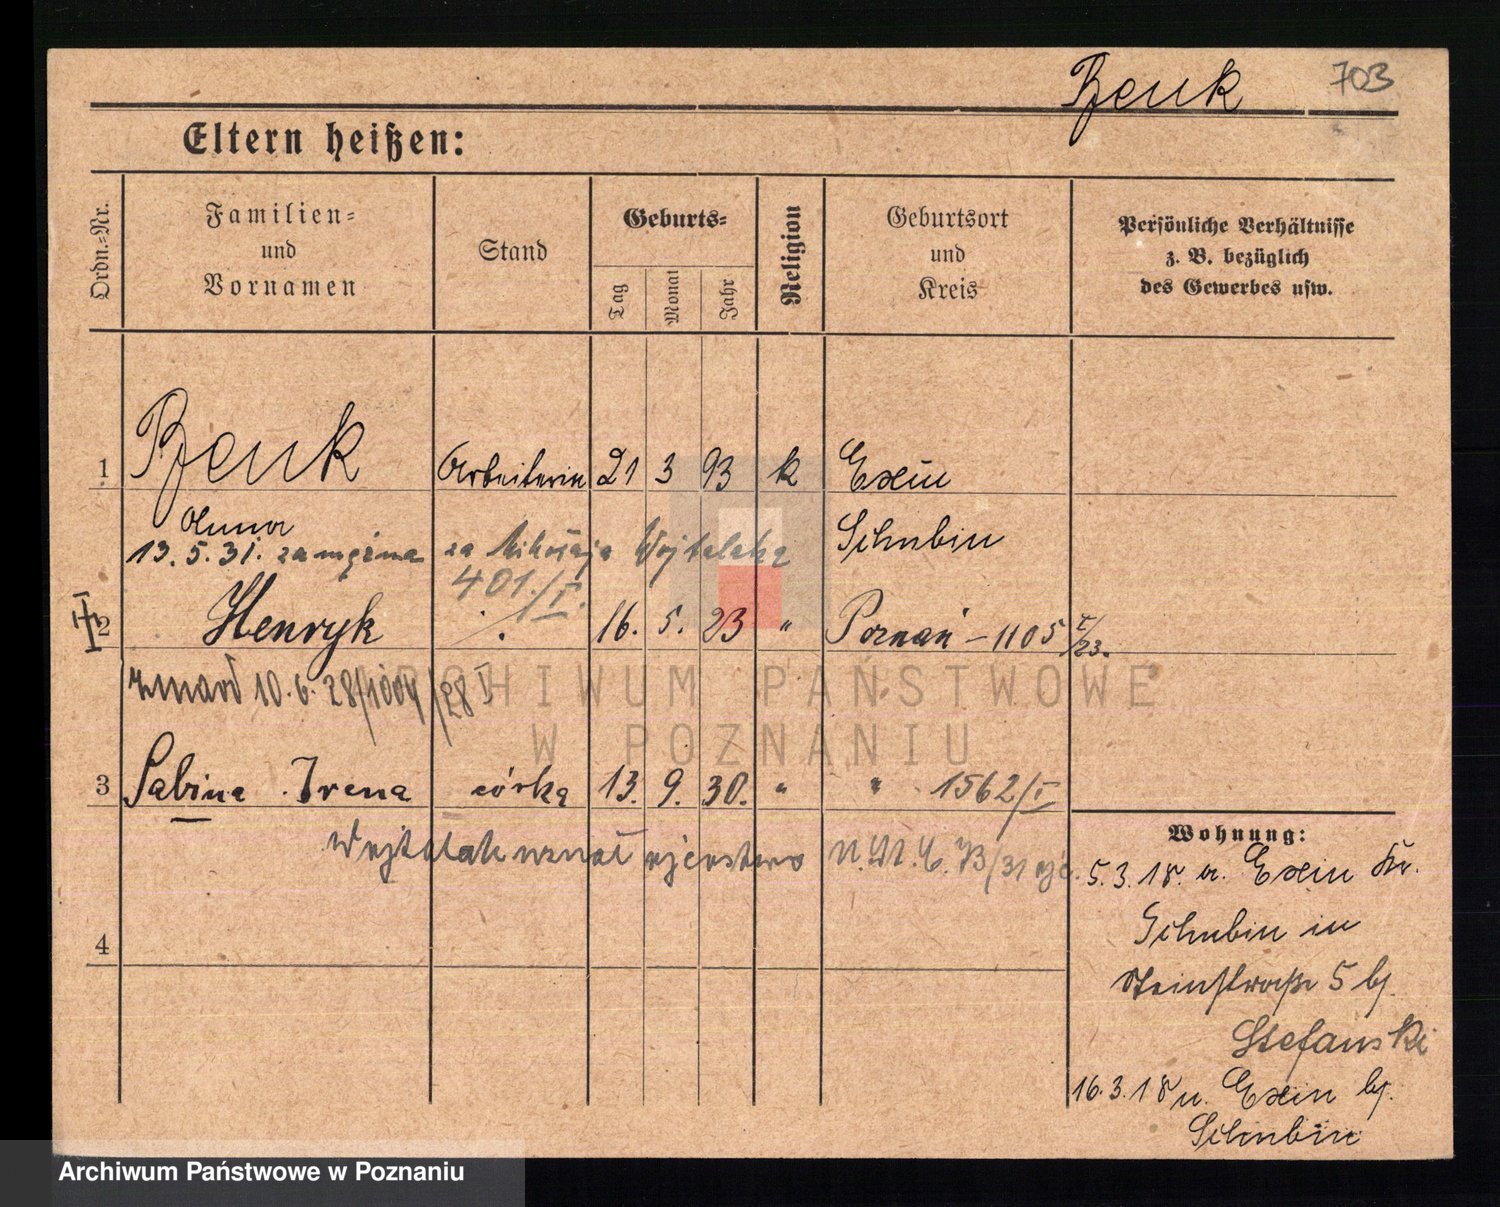 Rzeuk 703
Eltern heißen:
Ordn.=Nr.
Familien=
und
Vornamen
Stand
Geburts=
Tag
Monat
Jahr
Religion
Geburtsort
und
Kreis
Persönliche Verhältnisse
z. B. bezüglich
des Gewerbes usw.
1 Rzeuk Arbeiterin 21 3 93 k Exin
Anna Schubin
13.5.31. zamężna za Mikołaja Wojtalaka
401./I.
2 Henryk 16. 5. 23 " Poznań – 1105 I/23.
zmarł 10.6.28/1004/28 I
3 Sabina Irena córka 13. 9. 30. " " 1562/I
Wojtalak uznał ojcostwo 73/31
4
Wohnung:
5.3.18. a. Exin Kr.
Schubin in
Steinstraße 5 bj.
Stefanski
16.3.18 n. Exin bj.
Schubin
ARCHIWUM PAŃSTWOWE
W POZNANIU
Archiwum Państwowe w Poznaniu